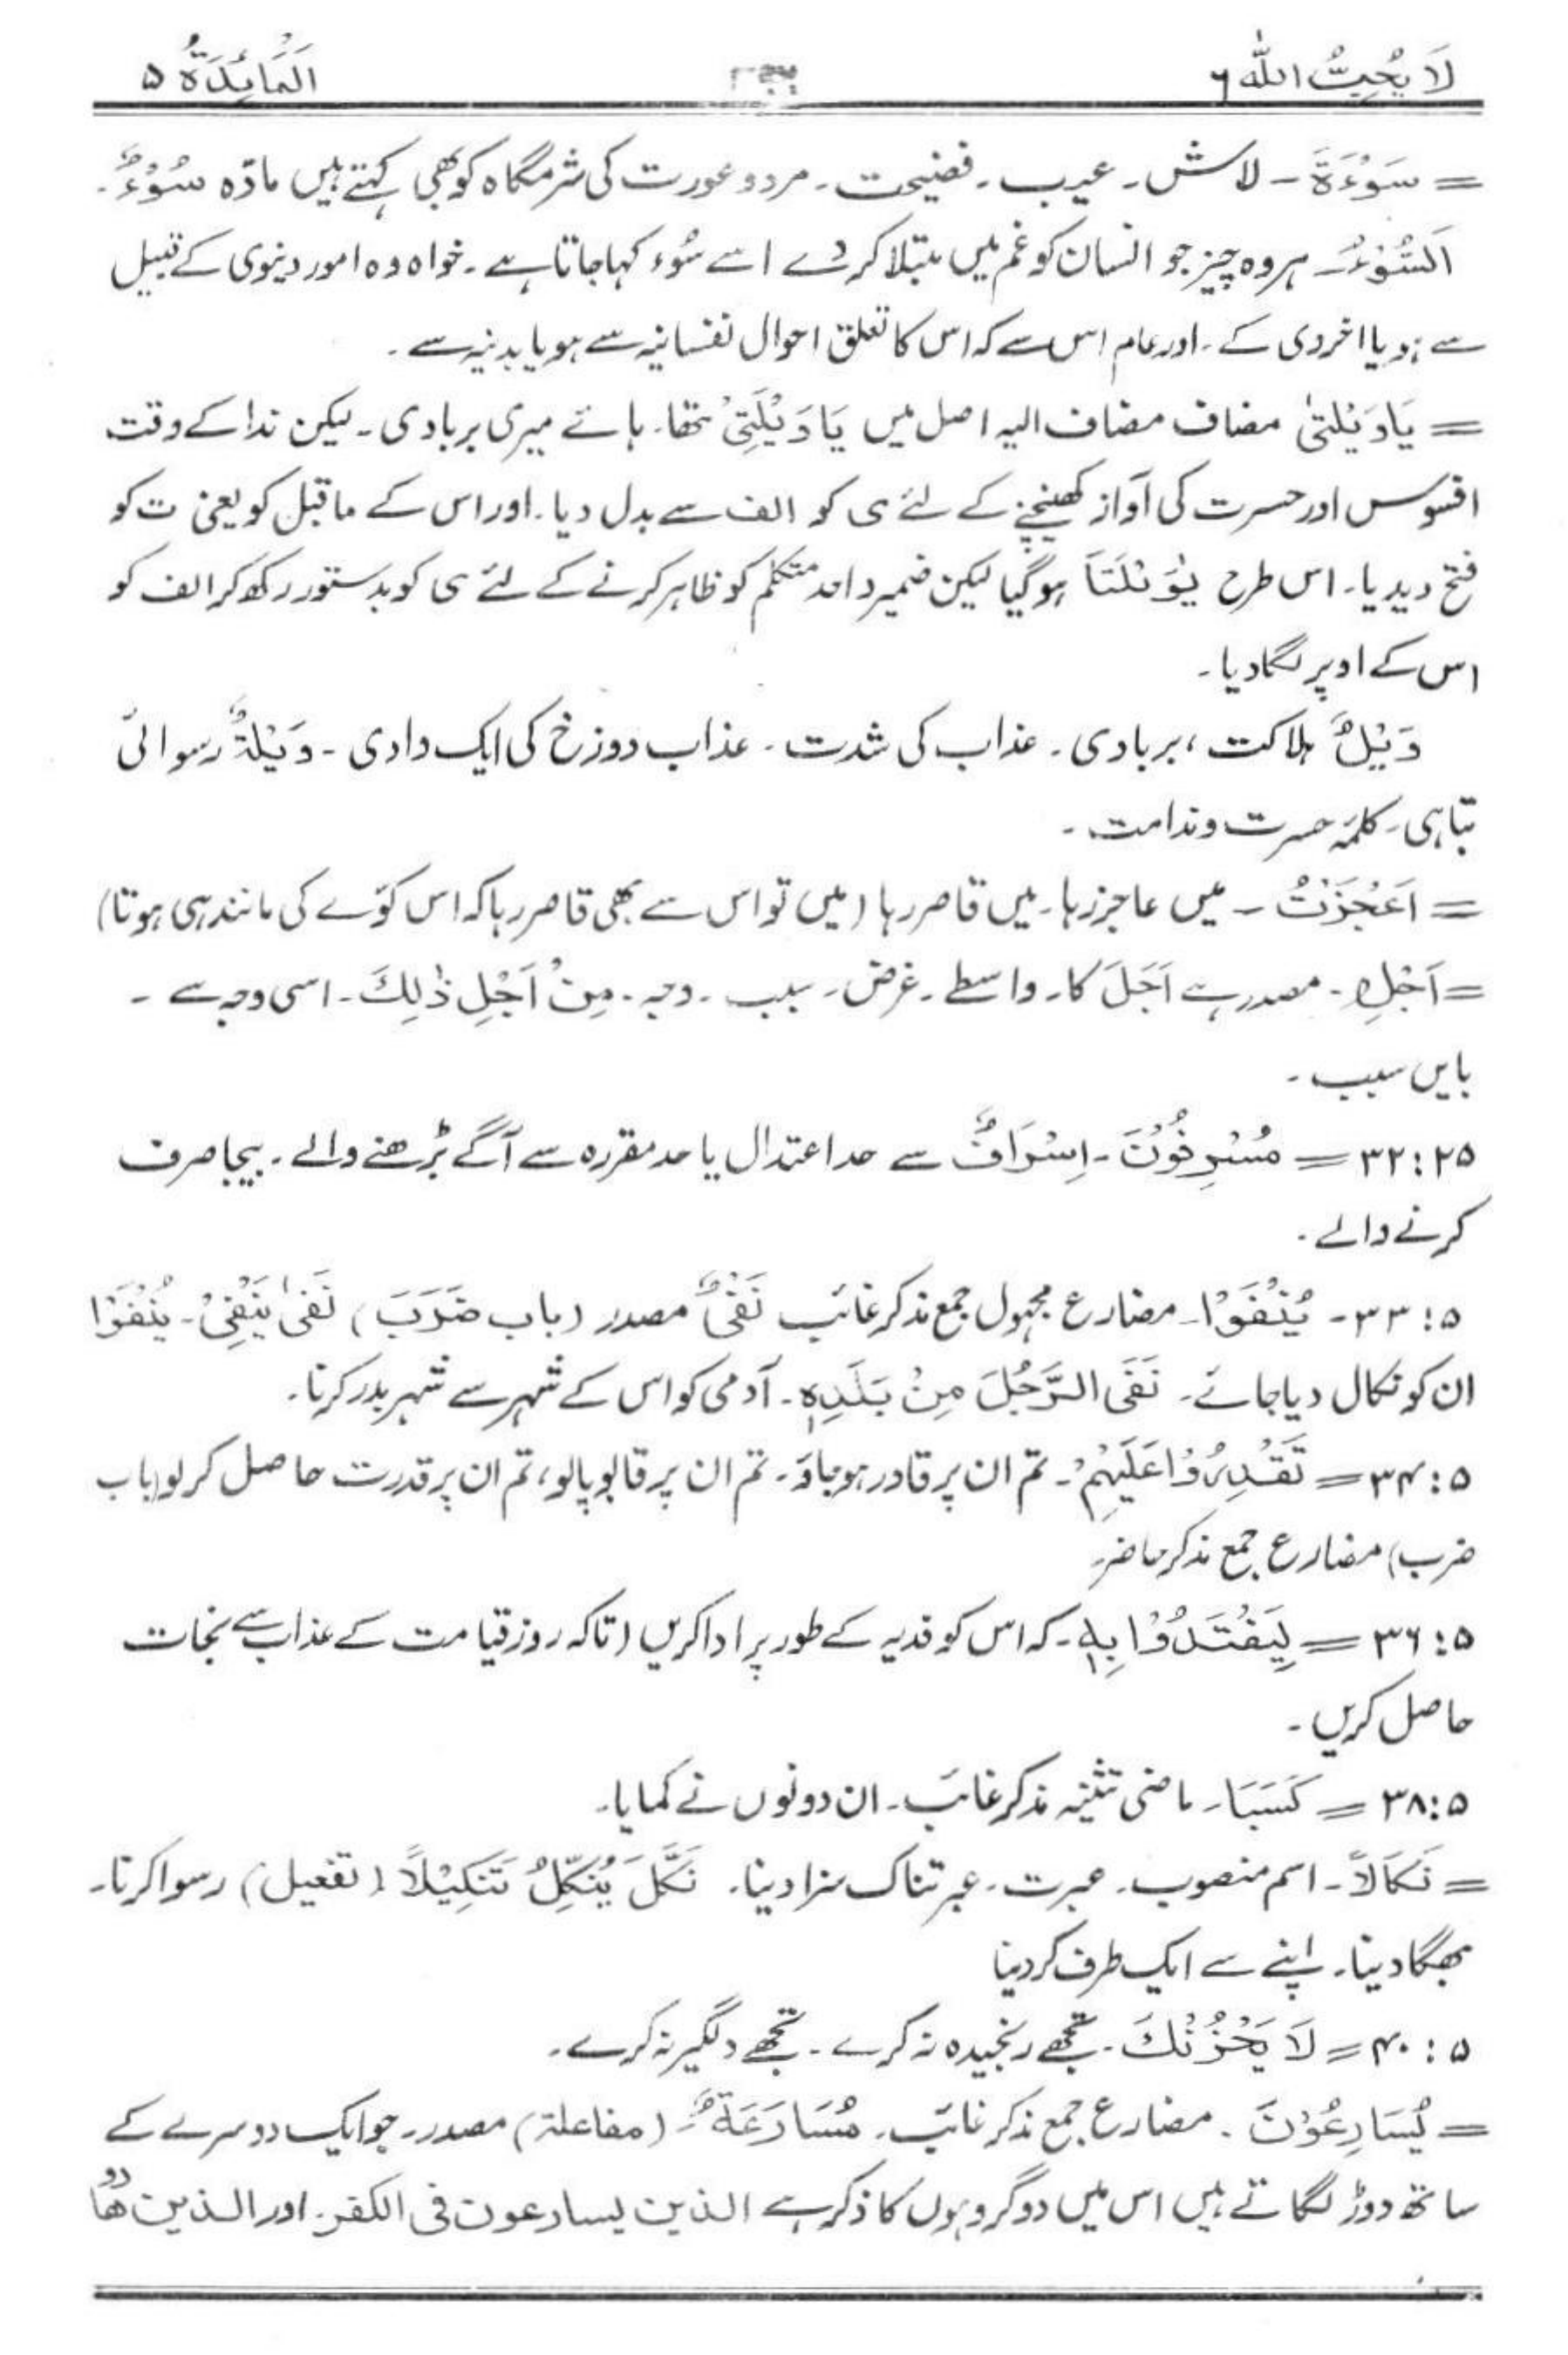 لَا یُحِبُّ اللّٰہ ۶ الْمَائِدَۃُ ۵
= سَوْءَۃَ ۔ لاش ۔ عیب ۔ فضیحت ۔ مرد و عورت کی شرمگاہ کو بھی کہتے ہیں مادّہ سُوْءٌ ۔
اَلسُّوْءُ ۔ ہر وہ چیز جو انسان کو غم میں مبتلا کر دے اسے سُوء کہا جاتا ہے ۔ خواہ وہ امور دینوی کے قبیل
سے ہو یا اخروی کے ۔ اور عام اس سے کہ اس کا تعلق احوال نفسانیہ سے ہو یا بدنیہ سے ۔
= یَاوَیْلَتٰی مضاف مضاف الیہ اصل میں یَا وَیْلَتِیْ تھا۔ ہائے میری بربادی ۔ لیکن ندا کے وقت
افسوس اور حسرت کی آواز کھینچنے کے لئے ی کو الف سے بدل دیا ۔ اور اس کے ماقبل کو یعنی ت کو
فتح دیدیا ۔ اس طرح یٰوَیْلَتَا ہو گیا لیکن ضمیر واحد متکلم کو ظاہر کرنے کے لئے ی کو بدستور رکھ کر الف کو
اس کے اوپر لگا دیا ۔
وَیْلٌ ہلاکت ، بربادی ۔ عذاب کی شدت ۔ عذاب دوزخ کی ایک وادی ۔ وَیْلَۃٌ رسوائی
تباہی ۔ کلمۂ حسرت و ندامت ۔
= اَعَجَزْتُ ۔ میں عاجز رہا ۔ میں قاصر رہا (میں تو اس سے بھی قاصر رہا کہ اس کوّے کی مانند ہی ہوتا)
= اَجْلِ ۔ مصدر ہے اَجَلَ کا ۔ واسطے ۔ غرض ۔ سبب ۔ وجہ ۔ مِنْ اَجْلِ ذٰلِکَ ۔ اسی وجہ سے ۔
بایں سبب ۔
۳۲:۲۵ = مُسْرِفُوْنَ ۔ اِسْرَافٌ سے حد اعتدال یا حد مقررہ سے آگے بڑھنے والے ۔ بیجا صرف
کرنے والے ۔
۵:۳۳ ۔ یُنْفَوْا ۔ مضارع مجہول جمع مذکر غائب نَفْیٌ مصدر (باب ضَرَبَ) نَفٰی یَنْفِیْ ۔ یُنْفَوْا
ان کو نکال دیا جائے ۔ نَفَی الرَّجُلَ مِنْ بَلَدِہٖ ۔ آدمی کو اس کے شہر سے شہر بدر کرنا ۔
۵:۳۴ = تَقْدِرُوْا عَلَیْہِمْ ۔ تم ان پر قادر ہو جاؤ ۔ تم ان پر قابو پا لو ، تم ان پر قدرت حاصل کر لو (باب
ضرب) مضارع جمع مذکر حاضر
۵:۳۶ = لِیَفْتَدُوْا بِہٖ ۔ کہ اس کو فدیہ کے طور پر ادا کریں (تاکہ روز قیامت کے عذاب سے نجات
حاصل کریں ۔
۵:۳۸ = کَسَبَا ۔ ماضی تثنیہ مذکر غائب ۔ ان دونوں نے کمایا ۔
= نَکَالًا ۔ اسم منصوب ۔ عبرت ۔ عبرتناک سزا دینا ۔ نَکَّلَ یُنَکِّلُ تَنْکِیْلًا (تفعیل) رسوا کرنا ۔
بھگا دینا ۔ اپنے سے ایک طرف کر دینا
۵:۴۰ = لَا یَحْزُنْکَ ۔ تجھے رنجیدہ نہ کرے ۔ تجھے دلگیر نہ کرے ۔
= یُسَارِعُوْنَ ۔ مضارع جمع مذکر غائب ۔ مُسَارَعَۃٌ ۔ (مفاعلۃ) مصدر ۔ جو ایک دوسرے کے
ساتھ دوڑ لگاتے ہیں اس میں دو گروہوں کا ذکر ہے الذین یسارعون فی الکفر ۔ اور الذین ھادُوْا